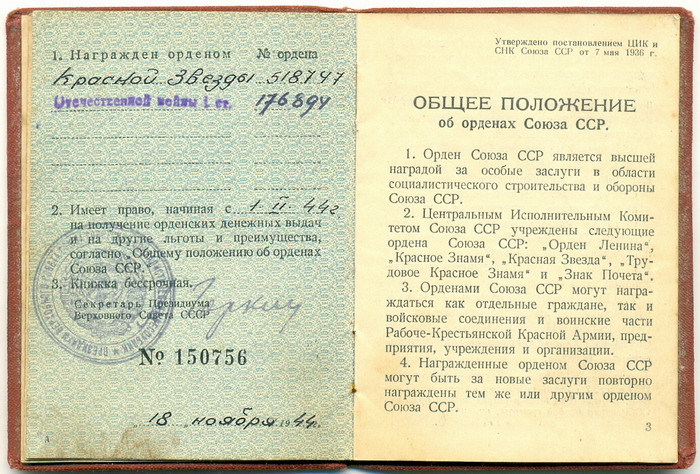 1. Награжден орденом № ордена
Красной Звезды 518747
Отечественной войны I ст. 176894
2. Имеет право, начиная с 1 II-44г
на получение орденских денежных выдач
и на другие льготы и преимущества,
согласно „Общему положению об орденах
Союза ССР.“
3. Книжка бессрочная.
Секретарь Президиума
Верховного Совета СССР
№ 150756
18 ноября 1944г.
А
Утверждено постановлением ЦИК и
СНК Союза ССР от 7 мая 1936 г.
ОБЩЕЕ ПОЛОЖЕНИЕ
об орденах Союза ССР.
1. Орден Союза ССР является высшей
наградой за особые заслуги в области
социалистического строительства и обороны
Союза ССР.
2. Центральным Исполнительным Коми-
тетом Союза ССР учреждены следующие
ордена Союза ССР: „Орден Ленина“,
„Красное Знамя“, „Красная Звезда“, „Тру-
довое Красное Знамя“ и „Знак Почета“.
3. Орденами Союза ССР могут на-
граждаться как отдельные граждане, так и
войсковые соединения и воинские части
Рабоче-Крестьянской Красной Армии, пред-
приятия, учреждения и организации.
4. Награжденные орденом Союза ССР
могут быть за новые заслуги повторно
награждены тем же или другим орденом
Союза ССР.
3